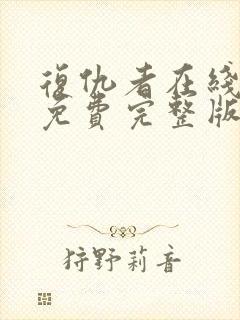 復仇者在綫
免費完整版
狩野莉音